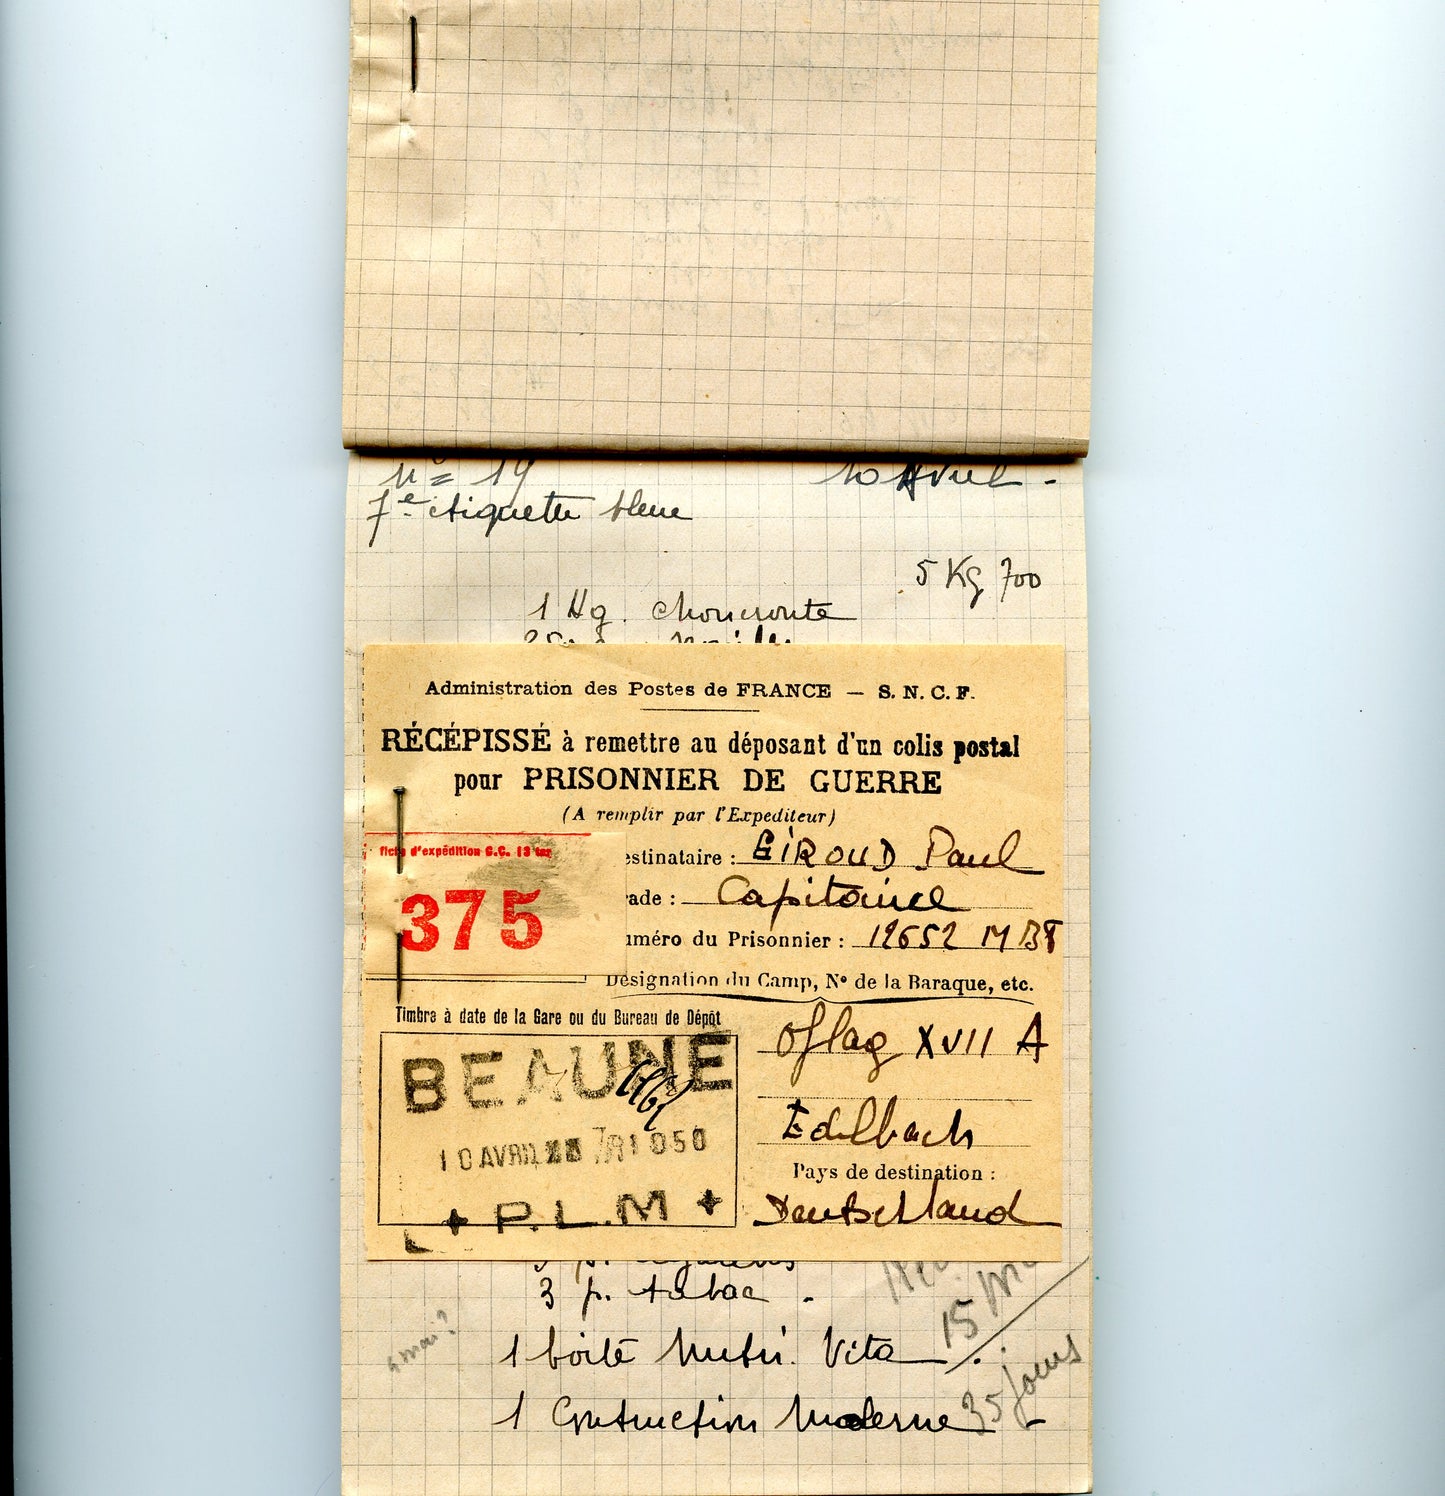 n° = 19 10 Avril -
7e étiquette bleue
5 Kg 700
1 Kg. choucroute
Administration des Postes de FRANCE — S. N. C. F.
RÉCÉPISSÉ à remettre au déposant d'un colis postal
pour PRISONNIER DE GUERRE
(A remplir par l'Expediteur)
fiche d'expédition C.C. 13 ter
375
estinataire : GIROUD Paul
ade : Capitaine
uméro du Prisonnier : 12652 M B8
Désignation du Camp, N° de la Baraque, etc.
Timbre à date de la Gare ou du Bureau de Dépôt
Oflag XVII A
Edelbach
BEAUNE
10 AVRIL 1050
P.L.M
Pays de destination :
Deutschland
3 p. tabac -
15
4 mai ?
1 boîte Nutri. Vita
35 jours
1 Construction Moderne -